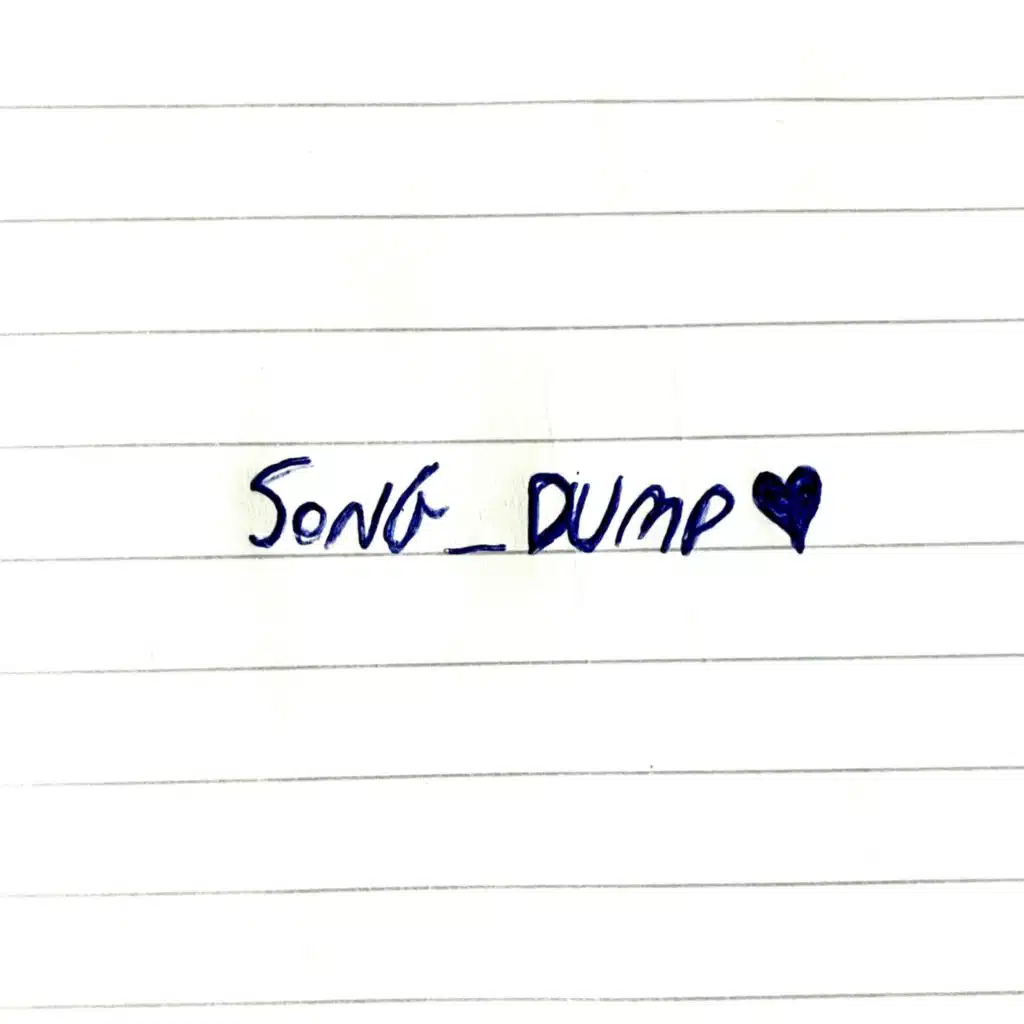 SONG_DUMP♥